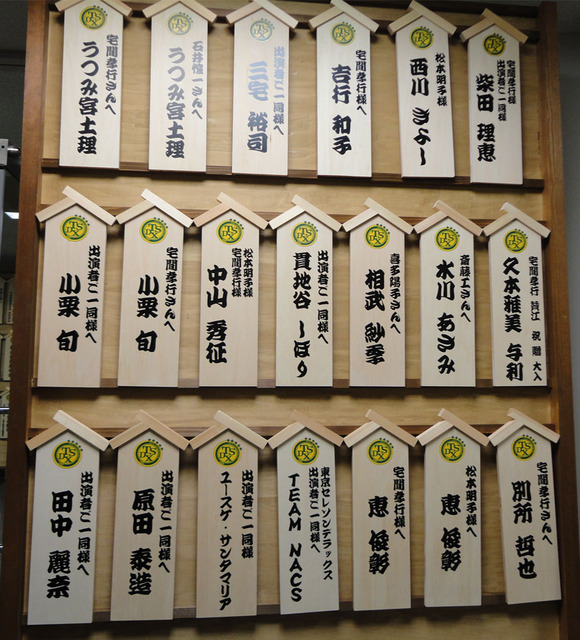 宅間孝行さんへ
うつみ宮土理
石井愃一さんへ
うつみ宮土理
出演者ご一同様へ
三宅 裕司
宅間孝行様へ
吉行 和子
松本明子様へ
西川 きよし
宅間孝行様
出演者ご一同様へ
柴田 理恵
出演者ご一同様へ
小栗 旬
宅間孝行さんへ
小栗 旬
松本明子様
宅間孝行様
中山 秀征
出演者ご一同様へ
貫地谷 しほり
喜多陽子さんへ
相武 紗季
斎藤工さんへ
水川 あさみ
宅間孝行 賛江 祝 贈 大入
久本雅美 与利
出演者ご一同様へ
田中 麗奈
出演者ご一同様へ
原田 泰造
出演者ご一同様
ユースケ・サンタマリア
東京セレソンデラックス
出演者ご一同様へ
TEAM NACS
宅間孝行様へ
恵 俊彰
松本明子様へ
恵 俊彰
宅間孝行さんへ
別所 哲也